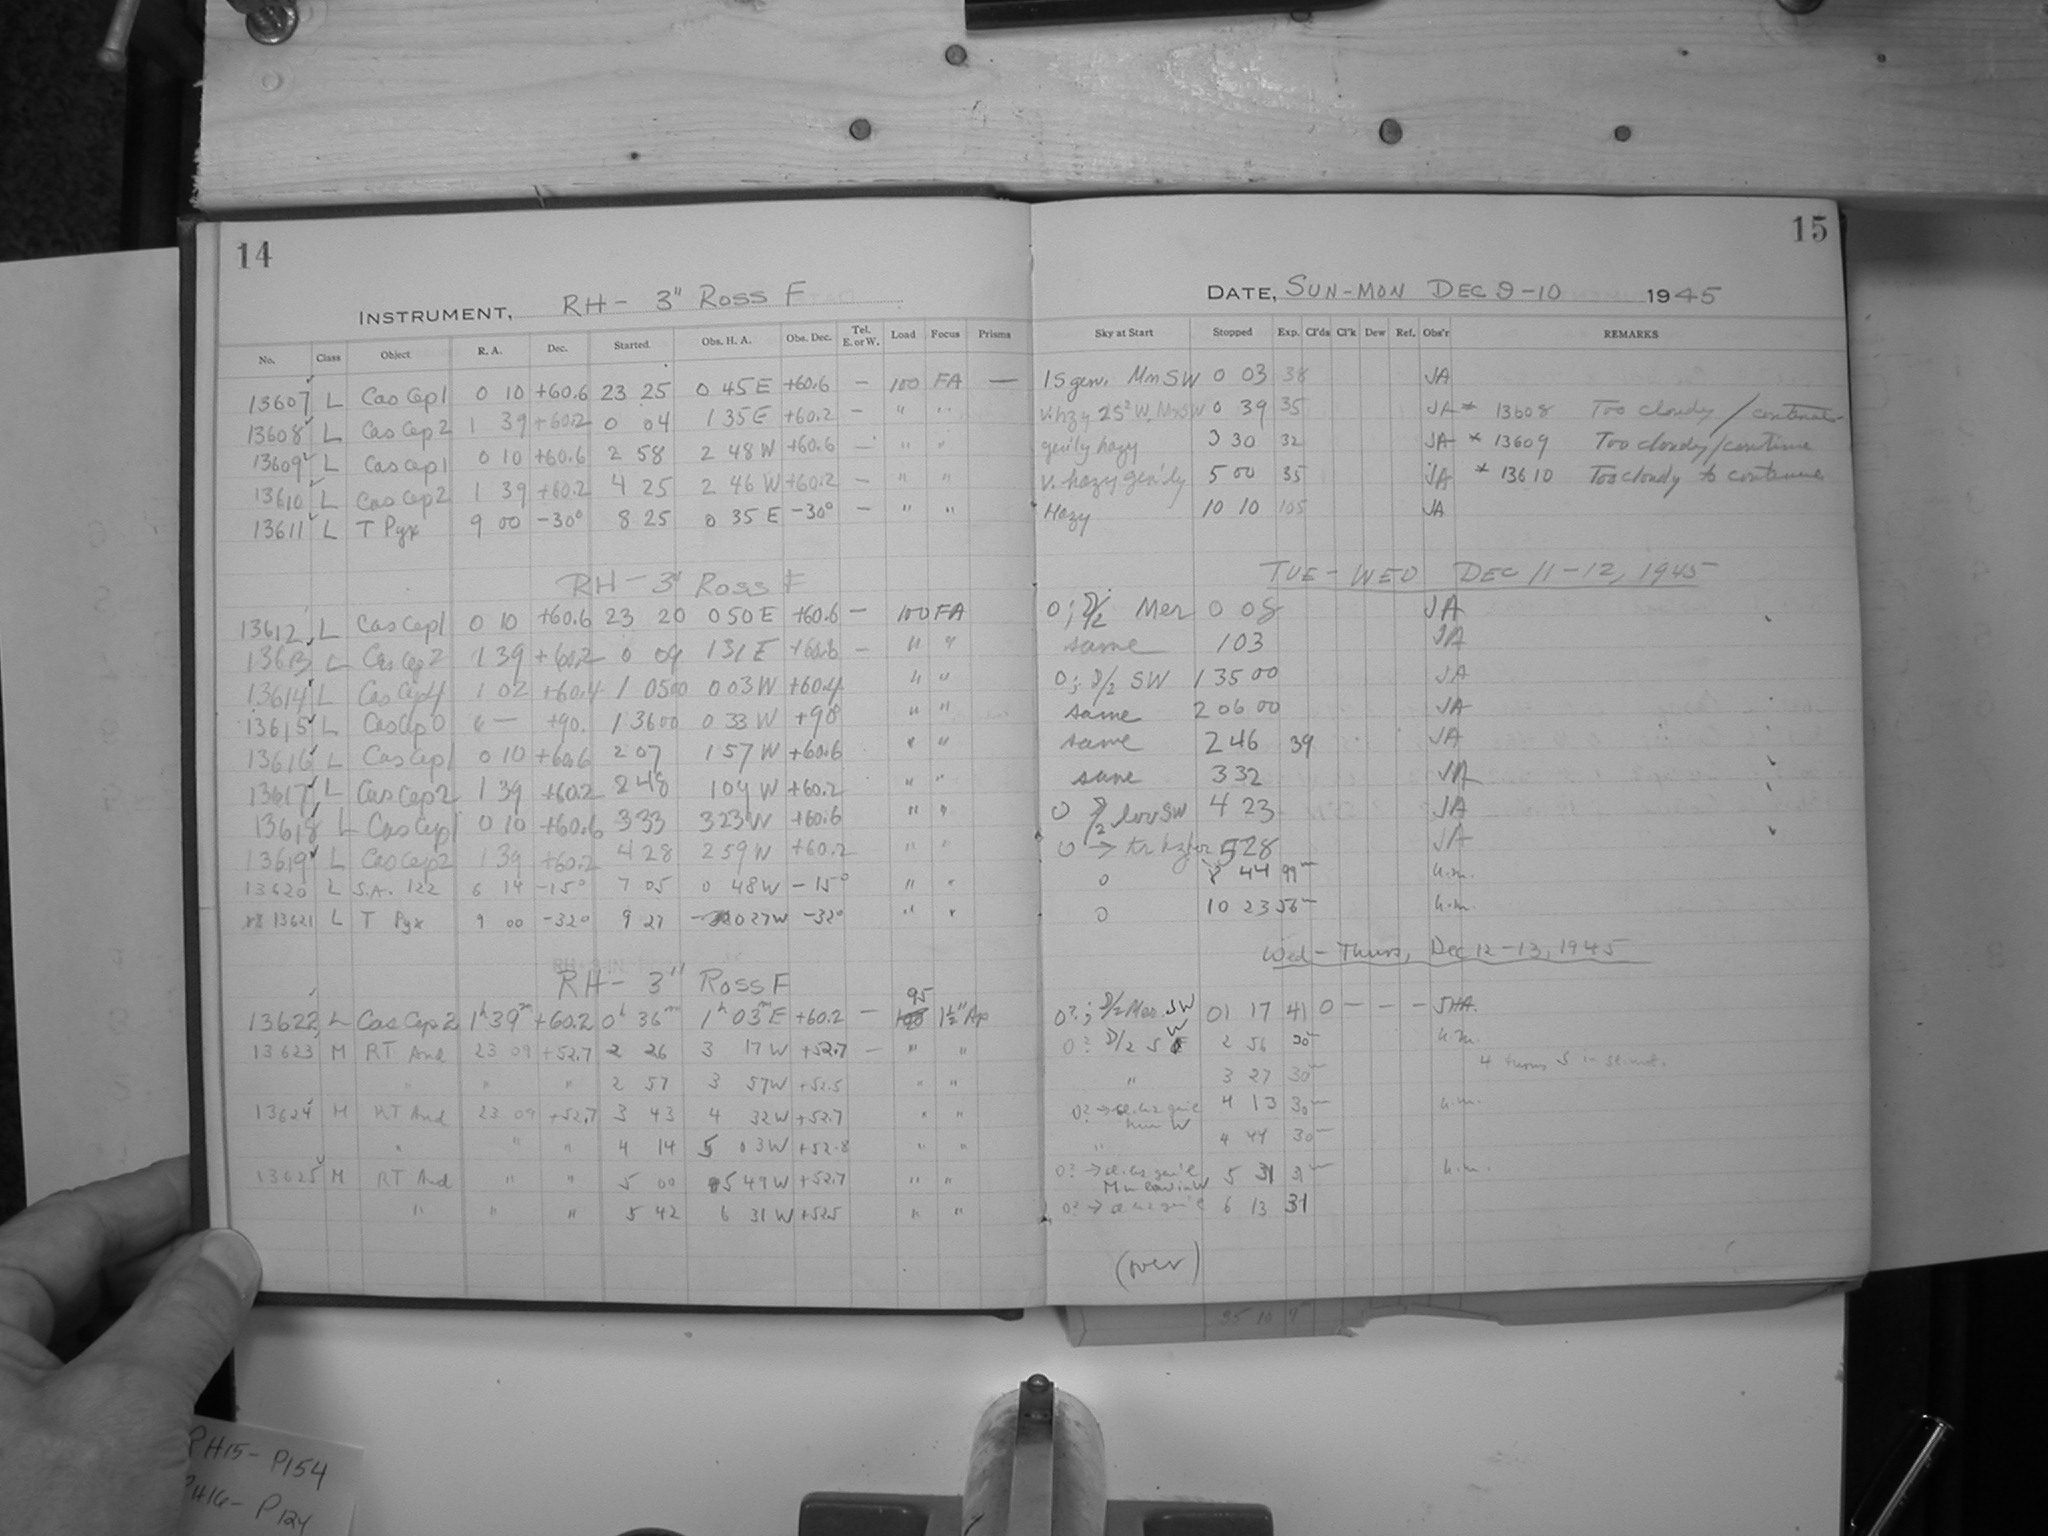 14
INSTRUMENT, RH- 3" ROSS F
No. Class Object R. A. Dec. Started. Obs. H. A. Obs. Dec. Tel. E. or W. Load Focus Prisms
13607 L CasCep1 0 10 +60.6 23 25 0 45 E +60.6 — 100 FA —
13608 L CasCep2 1 39 +60.2 0 04 1 35 E +60.2 — " "
13609 L CasCep1 0 10 +60.6 2 58 2 48 W +60.6 — " "
13610 L CasCep2 1 39 +60.2 4 25 2 46 W +60.2 — " "
13611 L T Pyx 9 00 -30° 8 25 0 35 E -30° — " "
RH - 3" ROSS F
13612 L CasCep1 0 10 +60.6 23 20 0 50 E +60.6 — 100 FA
13613 L CasCep2 1 39 +60.2 0 09 1 31 E — " "
13614 L CasCep4 1 02 +60.4 1 05 00 0 03 W +60.4 " "
13615 L CasCep0 — +90. 1 36 00 0 33 W +90 " "
13616 L CasCep1 0 10 +60.6 2 07 1 57 W +60.6 " "
13617 L CasCep2 1 39 +60.2 2 48 1 09 W +60.2 " "
13618 L CasCep1 0 10 +60.6 3 33 3 23 W +60.6 " "
13619 L CasCep2 1 39 +60.2 4 28 2 59 W +60.2 " "
13620 L S.A. 122 6 14 -15° 7 05 0 48 W -15° " "
13621 L T Pyx 9 00 -32° 9 27 0 27 W -32° " "
RH - 3" ROSS F
95
13622 L CasCep2 1h 39m +60.2 0h 36m 1h 03m E +60.2 — 100 1½" Ap
13623 M RT And 23 09 +52.7 2 26 3 17 W +52.7 — " "
" " " 2 57 3 57 W +52.5 " "
13624 M RT And 23 09 +52.7 3 43 4 32 W +52.7 " "
" " " 4 14 5 03 W +52.8 " "
13625 M RT And " " 5 00 5 49 W +52.7 " "
" " " 5 42 6 31 W +52.5 " "
15
DATE, SUN-MON DEC 9-10 1945
Sky at Start Stopped Exp. Cl'ds Cl'k Dew Ref. Obs'r REMARKS
Mn SW 0 03 38 JA
0 39 35 JA * 13608 Too cloudy / continue
gen'ly hazy 3 30 32 JA * 13609 Too cloudy / continue
v. hazy gen'ly 5 00 35 JA * 13610 Too cloudy to continue
Hazy 10 10 105 JA
TUE - WED DEC 11-12, 1945
0; Mer 0 08 JA
same 1 03 JA
0; SW 1 35 00 JA
same 2 06 00 JA
same 2 46 39 JA
same 3 32 JA
0 low SW 4 23 JA
0 → 5 28 JA
0 8 44 99m
0 10 23 56m
Wed - Thurs, Dec 12-13, 1945
0?; Mer. SW 01 17 41 0 — — — SHA.
0? 2 56 30m
4 turns S in
" 3 27 30m
0? → 4 13 30m
" 4 44 30m
0? → 5 31 31m
Mn low in W
0? → 6 13 31
(over)
PH15 - P154
PH16 - P124